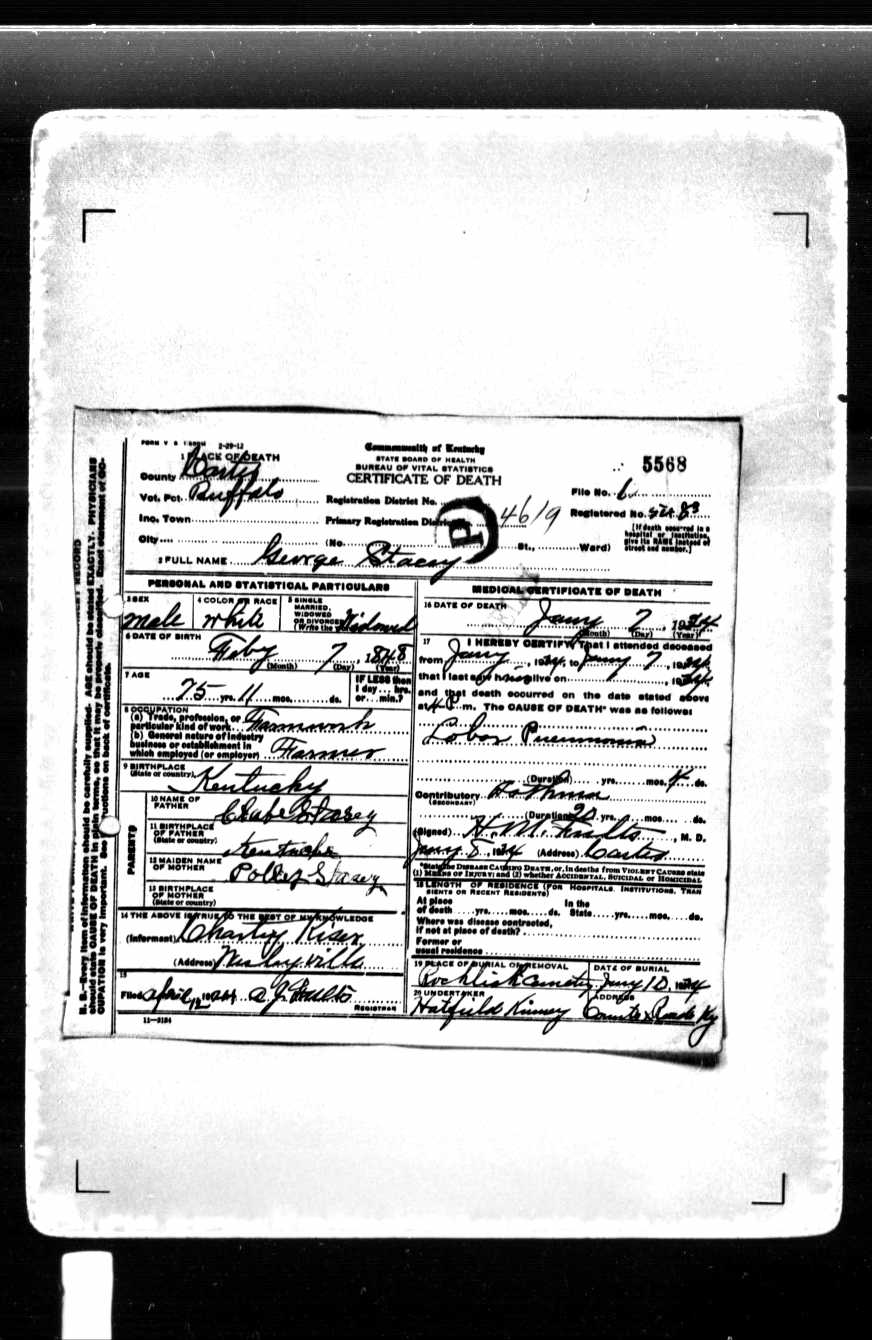 2-29-12
1 PLACE OF DEATH
County Carter
Vot. Pct. Buffalo
Inc. Town
City
Commonwealth of Kentucky
STATE BOARD OF HEALTH
BUREAU OF VITAL STATISTICS
CERTIFICATE OF DEATH
Registration District No.
Primary Registration District 4619
(No. St., Ward)
5568
File No. 6
Registered No. 83
[If death occurred in a hospital or institution, give its NAME instead of street and number.]
2 FULL NAME George Stacey
P
PERSONAL AND STATISTICAL PARTICULARS
3 SEX
male
4 COLOR OR RACE
white
5 SINGLE MARRIED, WIDOWED OR DIVORCED (Write the
Widowed
6 DATE OF BIRTH
Feby 7, 1848
(Month) (Day) (Year)
7 AGE
75 yrs. 11 mos. ds.
IF LESS than 1 day ... hrs. or ... min.?
8 OCCUPATION
(a) Trade, profession, or particular kind of work Farmwork
(b) General nature of industry business or establishment in which employed (or employer) Farmer
9 BIRTHPLACE
(State or country) Kentucky
PARENTS
10 NAME OF FATHER Stacey
11 BIRTHPLACE OF FATHER (State or country) Kentucky
12 MAIDEN NAME OF MOTHER Polley Stacey
13 BIRTHPLACE OF MOTHER (State or country)
14 THE ABOVE IS TRUE TO THE BEST OF MY KNOWLEDGE
(Informant) Charley Kiser
(Address) Wesleyville
15
Filed April 12 1924 A. J. Fults
REGISTRAR
11-3184
MEDICAL CERTIFICATE OF DEATH
16 DATE OF DEATH
Jany 7, 1924
(Month) (Day) (Year)
17 I HEREBY CERTIFY, That I attended deceased
from Jany, 1924, to Jany 7, 1924,
that I last saw h alive on, 1924,
and that death occurred on the date stated above
at 4 P. m. The CAUSE OF DEATH* was as follows:
Lobar Pneumonia
(Duration) yrs. mos. 4 ds.
Contributory Asthma
(SECONDARY)
(Duration) 20 yrs. mos. ds.
(Signed) H. M. Fults, M. D.
Jany 8, 1924 (Address) Carter
*State the DISEASE CAUSING DEATH, or, in deaths from VIOLENT CAUSES state (1) MEANS OF INJURY; and (2) whether ACCIDENTAL, SUICIDAL or HOMICIDAL
18 LENGTH OF RESIDENCE (FOR HOSPITALS, INSTITUTIONS, TRANSIENTS OR RECENT RESIDENTS)
At place of death yrs. mos. ds. In the State yrs. mos. ds.
Where was disease contracted, if not at place of death?
Former or usual residence
19 PLACE OF BURIAL OR REMOVAL
Rocklick Cemetery
DATE OF BURIAL
Jany 10, 1924
20 UNDERTAKER
Hatfield Kinney
ADDRESS
Counts x Roads Ky
N. B.—Every item of information should be carefully supplied. AGE should be stated EXACTLY. PHYSICIANS should state CAUSE OF DEATH in plain terms, so that it may be properly classified. Exact statement of OCCUPATION is very important. See instructions on back of certificate.